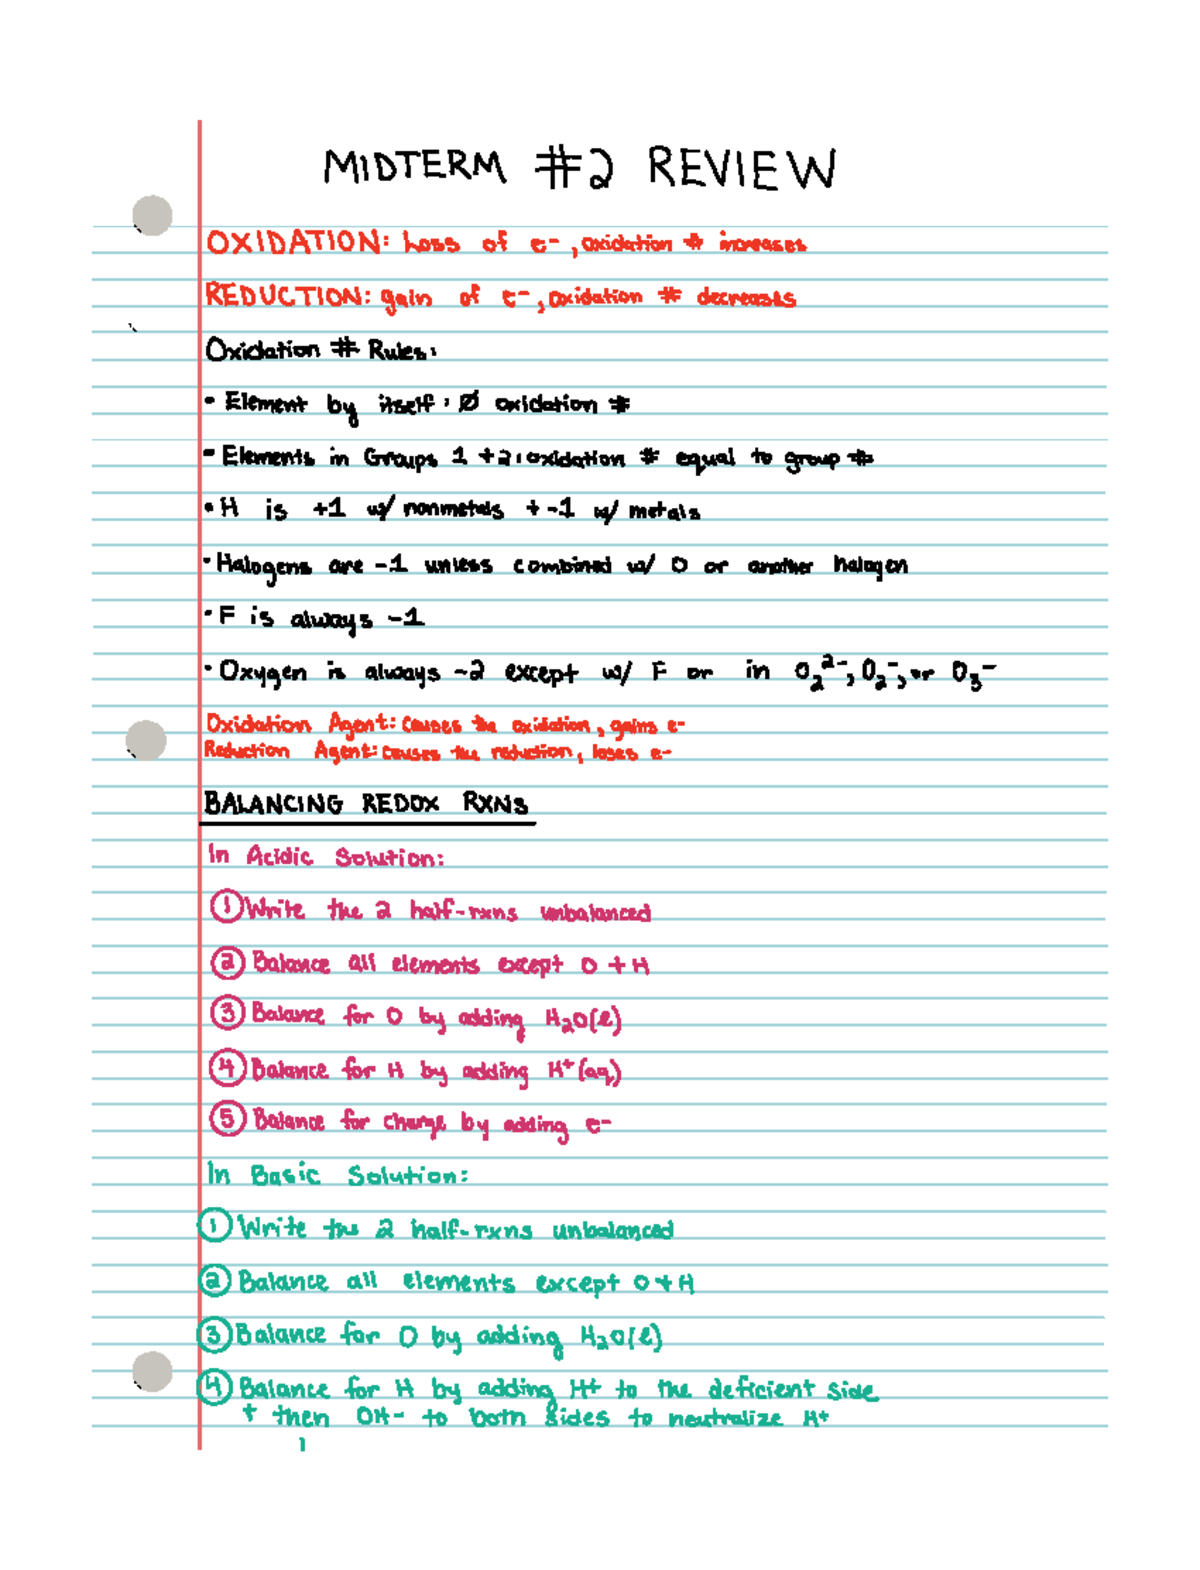 MIDTERM #2 REVIEW
OXIDATION: Loss of e-, oxidation # increases
REDUCTION: gain of e-, oxidation # decreases
Oxidation # Rules:
• Element by itself: Ø oxidation #
• Elements in Groups 1 + 2: oxidation # equal to group #
• H is +1 w/ nonmetals + -1 w/ metals
• Halogens are -1 unless combined w/ O or another halogen
• F is always -1
• Oxygen is always -2 except w/ F or in O₂²⁻, O₂⁻, or O₃⁻
Oxidation Agent: causes the oxidation, gains e-
Reduction Agent: causes the reduction, loses e-
BALANCING REDOX RXNS
In Acidic Solution:
① Write the 2 half-rxns unbalanced
② Balance all elements except O + H
③ Balance for O by adding H₂O(l)
④ Balance for H by adding H⁺(aq)
⑤ Balance for charge by adding e-
In Basic Solution:
① Write the 2 half-rxns unbalanced
② Balance all elements except O + H
③ Balance for O by adding H₂O(l)
④ Balance for H by adding H+ to the deficient side
+ then OH- to both sides to neutralize H+